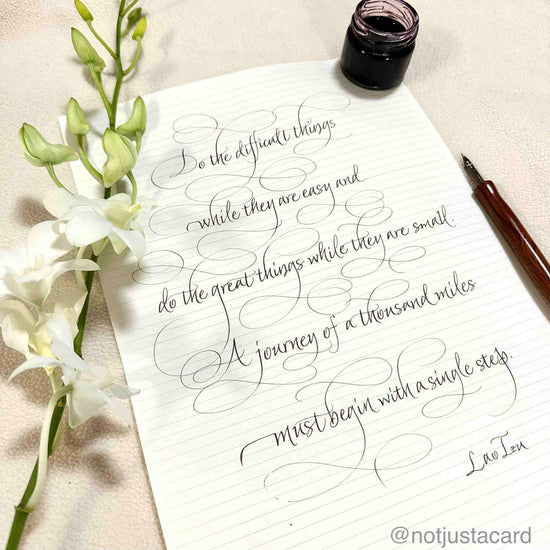 Do the difficult things
while they are easy and
do the great things while they are small.
A journey of a thousand miles
must begin with a single step.
Lao Tzu
@notjustacard